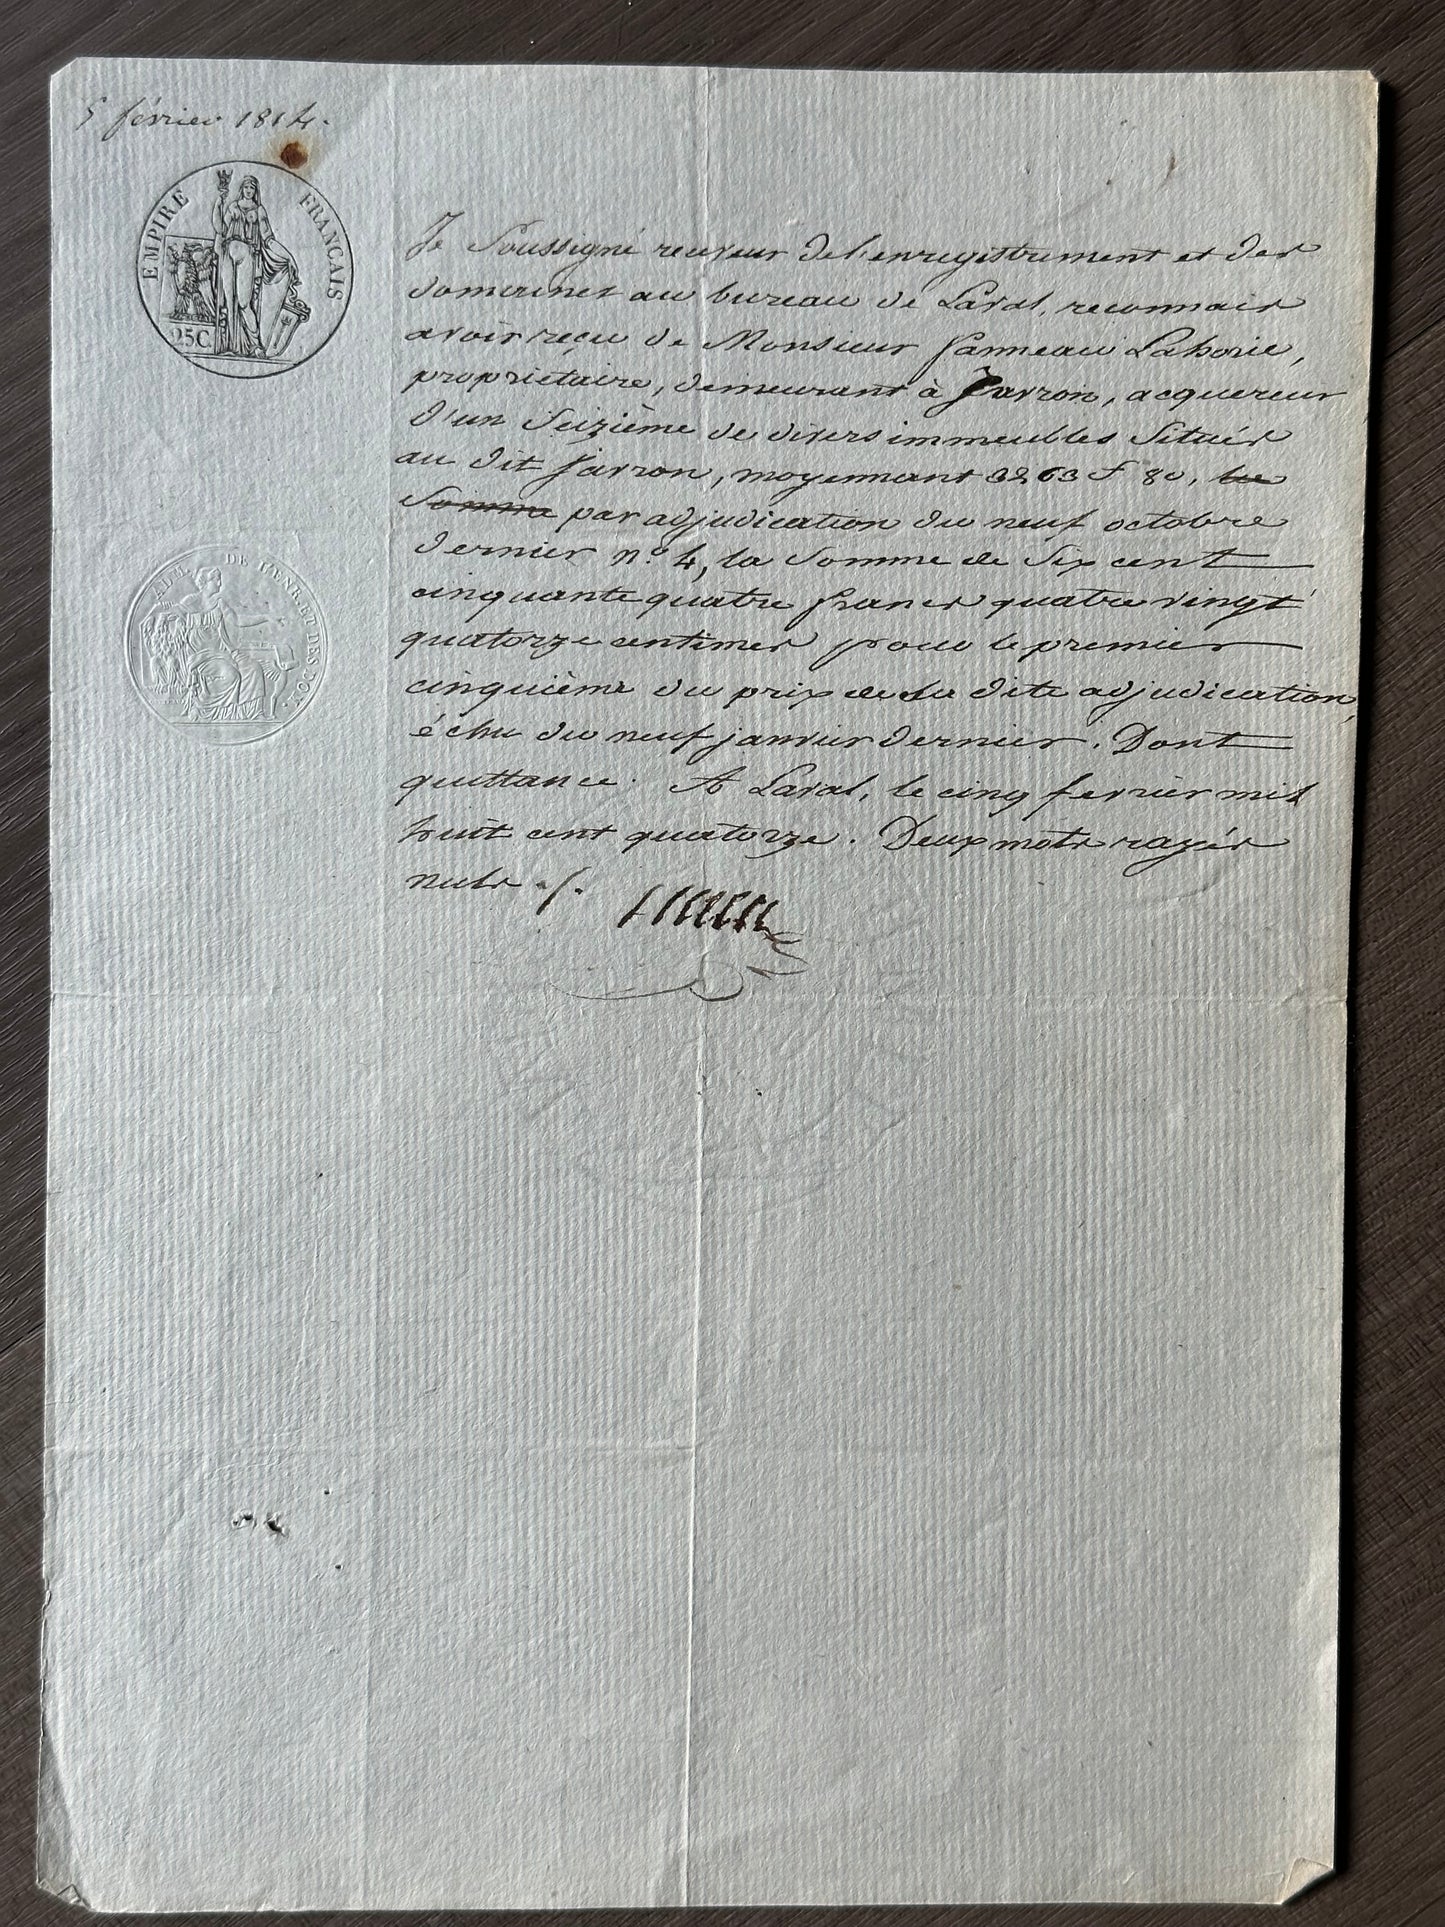 5 février 1814.
EMPIRE FRANÇAIS
25C.
ADM. DE L'ENR. ET DES DOM.
Je Soussigné receveur de l'enregistrement et des
domaines au bureau de Laval, reconnais
avoir reçu de Monsieur Fanneau Lahorie,
propriétaire, demeurant à Javron, acquereur
d'un Seizième de divers immeubles Situés
au dit Javron, moyennant 3263 f 80, la
Somme par adjudication du neuf octobre
dernier n.° 4, la Somme de Six cent
cinquante quatre francs quatre vingt
quatorze centimes pour le premier
cinquième du prix de la dite adjudication,
échu du neuf janvier dernier. Dont
quittance. A Laval, le cinq fevrier mil
huit cent quatorze. Deux mots rayés
nuls ./.